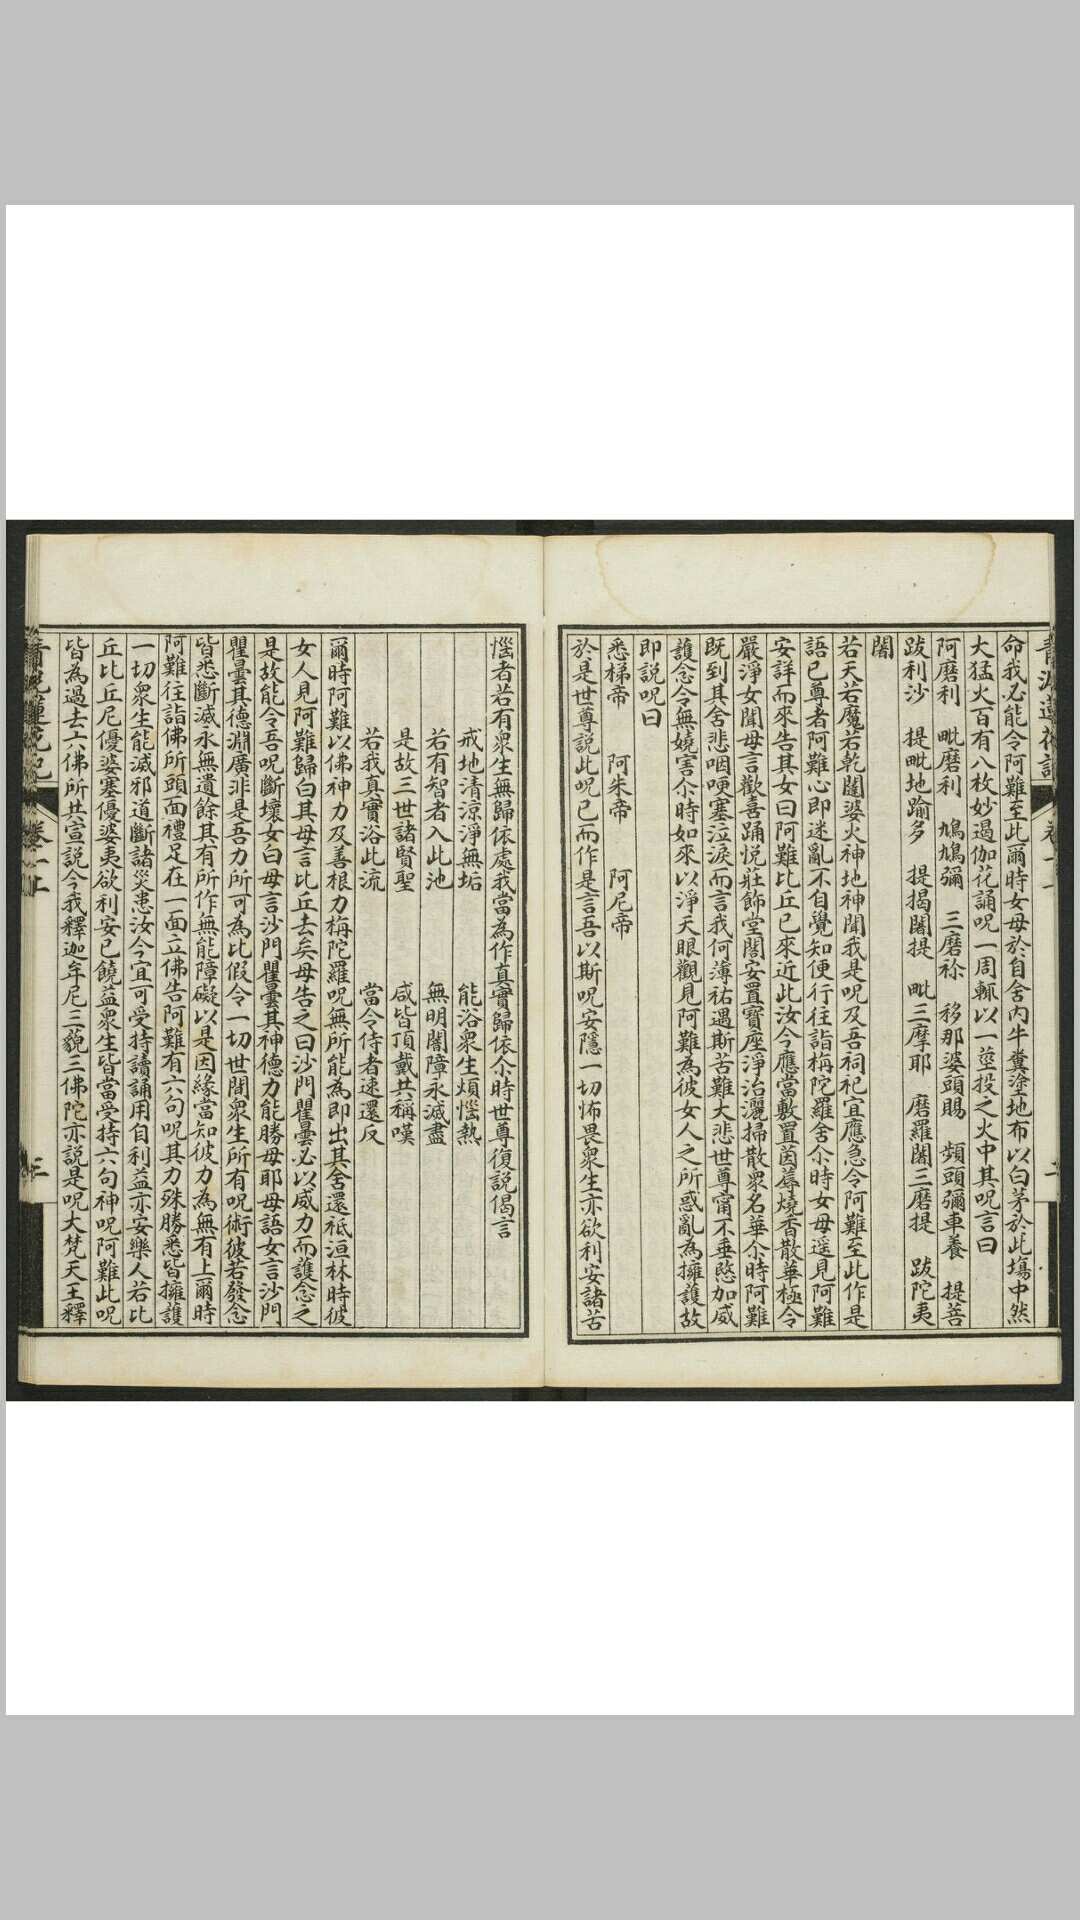 命我必能令阿難至此爾時女母於自舍内牛糞塗地布以白茅於此場中然
大猛火百有八枚妙遏伽花誦呪一周輒以一莖投之火中其呪言曰
阿磨利 毗磨利 鳩鳩彌 三磨祢 移那婆頭賜 頻頭彌車養 提菩
跋利沙 提毗地踰多 提揭闍提 毗三摩耶 磨羅闍三磨提 跋陀夷
闍
若天若魔若乾闥婆火神地神聞我是呪及吾祠祀宜應急令阿難至此作是
語已尊者阿難心即迷亂不自覺知便行往詣栴陀羅舍尒時女母遥見阿難
安詳而來告其女曰阿難比丘已來近此汝今應當敷置茵蓐燒香散華極令
嚴淨女聞母言歡喜踊悅莊飾堂閣安置寳座淨治灑掃散衆名華尒時阿難
既到其舍悲咽哽塞泣淚而言我何薄祐遇斯苦難大悲世尊甯不垂愍加威
護念令無嬈害尒時如來以淨天眼觀見阿難為彼女人之所惑亂為擁護故
即說呪曰
悉梯帝 阿朱帝 阿尼帝
於是世尊說此呪已而作是言吾以斯呪安隱一切怖畏衆生亦欲利安諸苦
惱者若有衆生無歸依處我當為作真實歸依尒時世尊復說偈言
戒地清涼淨無垢 能浴衆生煩惱熱
若有智者入此池 無明闇障永滅盡
是故三世諸賢聖 咸皆頂戴共稱嘆
若我真實浴此流 當令侍者速還反
爾時阿難以佛神力及善根力栴陀羅呪無所能為即出其舍還祗洹林時彼
女人見阿難歸白其母言比丘去矣母告之曰沙門瞿曇必以威力而護念之
是故能令吾呪斷壞女白母言沙門瞿曇其神德力能勝母耶母語女言沙門
瞿曇其德淵廣非是吾力所可為比假令一切世間衆生所有呪術彼若發念
皆悉斷滅永無遺餘其有所作無能障礙以是因緣當知彼力為無有上爾時
阿難往詣佛所頭面禮足在一面立佛告阿難有六句呪其力殊勝悉皆擁護
一切衆生能滅邪道斷諸災患汝今宜可受持讀誦用自利益亦安樂人若比
丘比丘尼優婆塞優婆夷欲利安已饒益衆生皆當受持六句神呪阿難此呪
皆為過去六佛所共宣說今我釋迦牟尼三藐三佛陀亦說是呪大梵天王釋